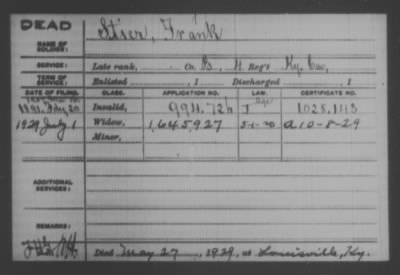 DEAD
NAME OF SOLDIER: Stier, Frank
SERVICE: Late rank, Co. B, 11 Reg't Ky. Cav.
TERM OF SERVICE: Enlisted , 1 Discharged , 1
DATE OF FILING. CLASS. APPLICATION NO. LAW. CERTIFICATE NO.
1891, 20 Invalid, 994.726 1025.1113
1929 July 1 Widow, 1,645,927 5-1-20 A 10-8-29
Minor,
ADDITIONAL SERVICES:
REMARKS:
Died May 27, 1929, at Louisville, Ky.